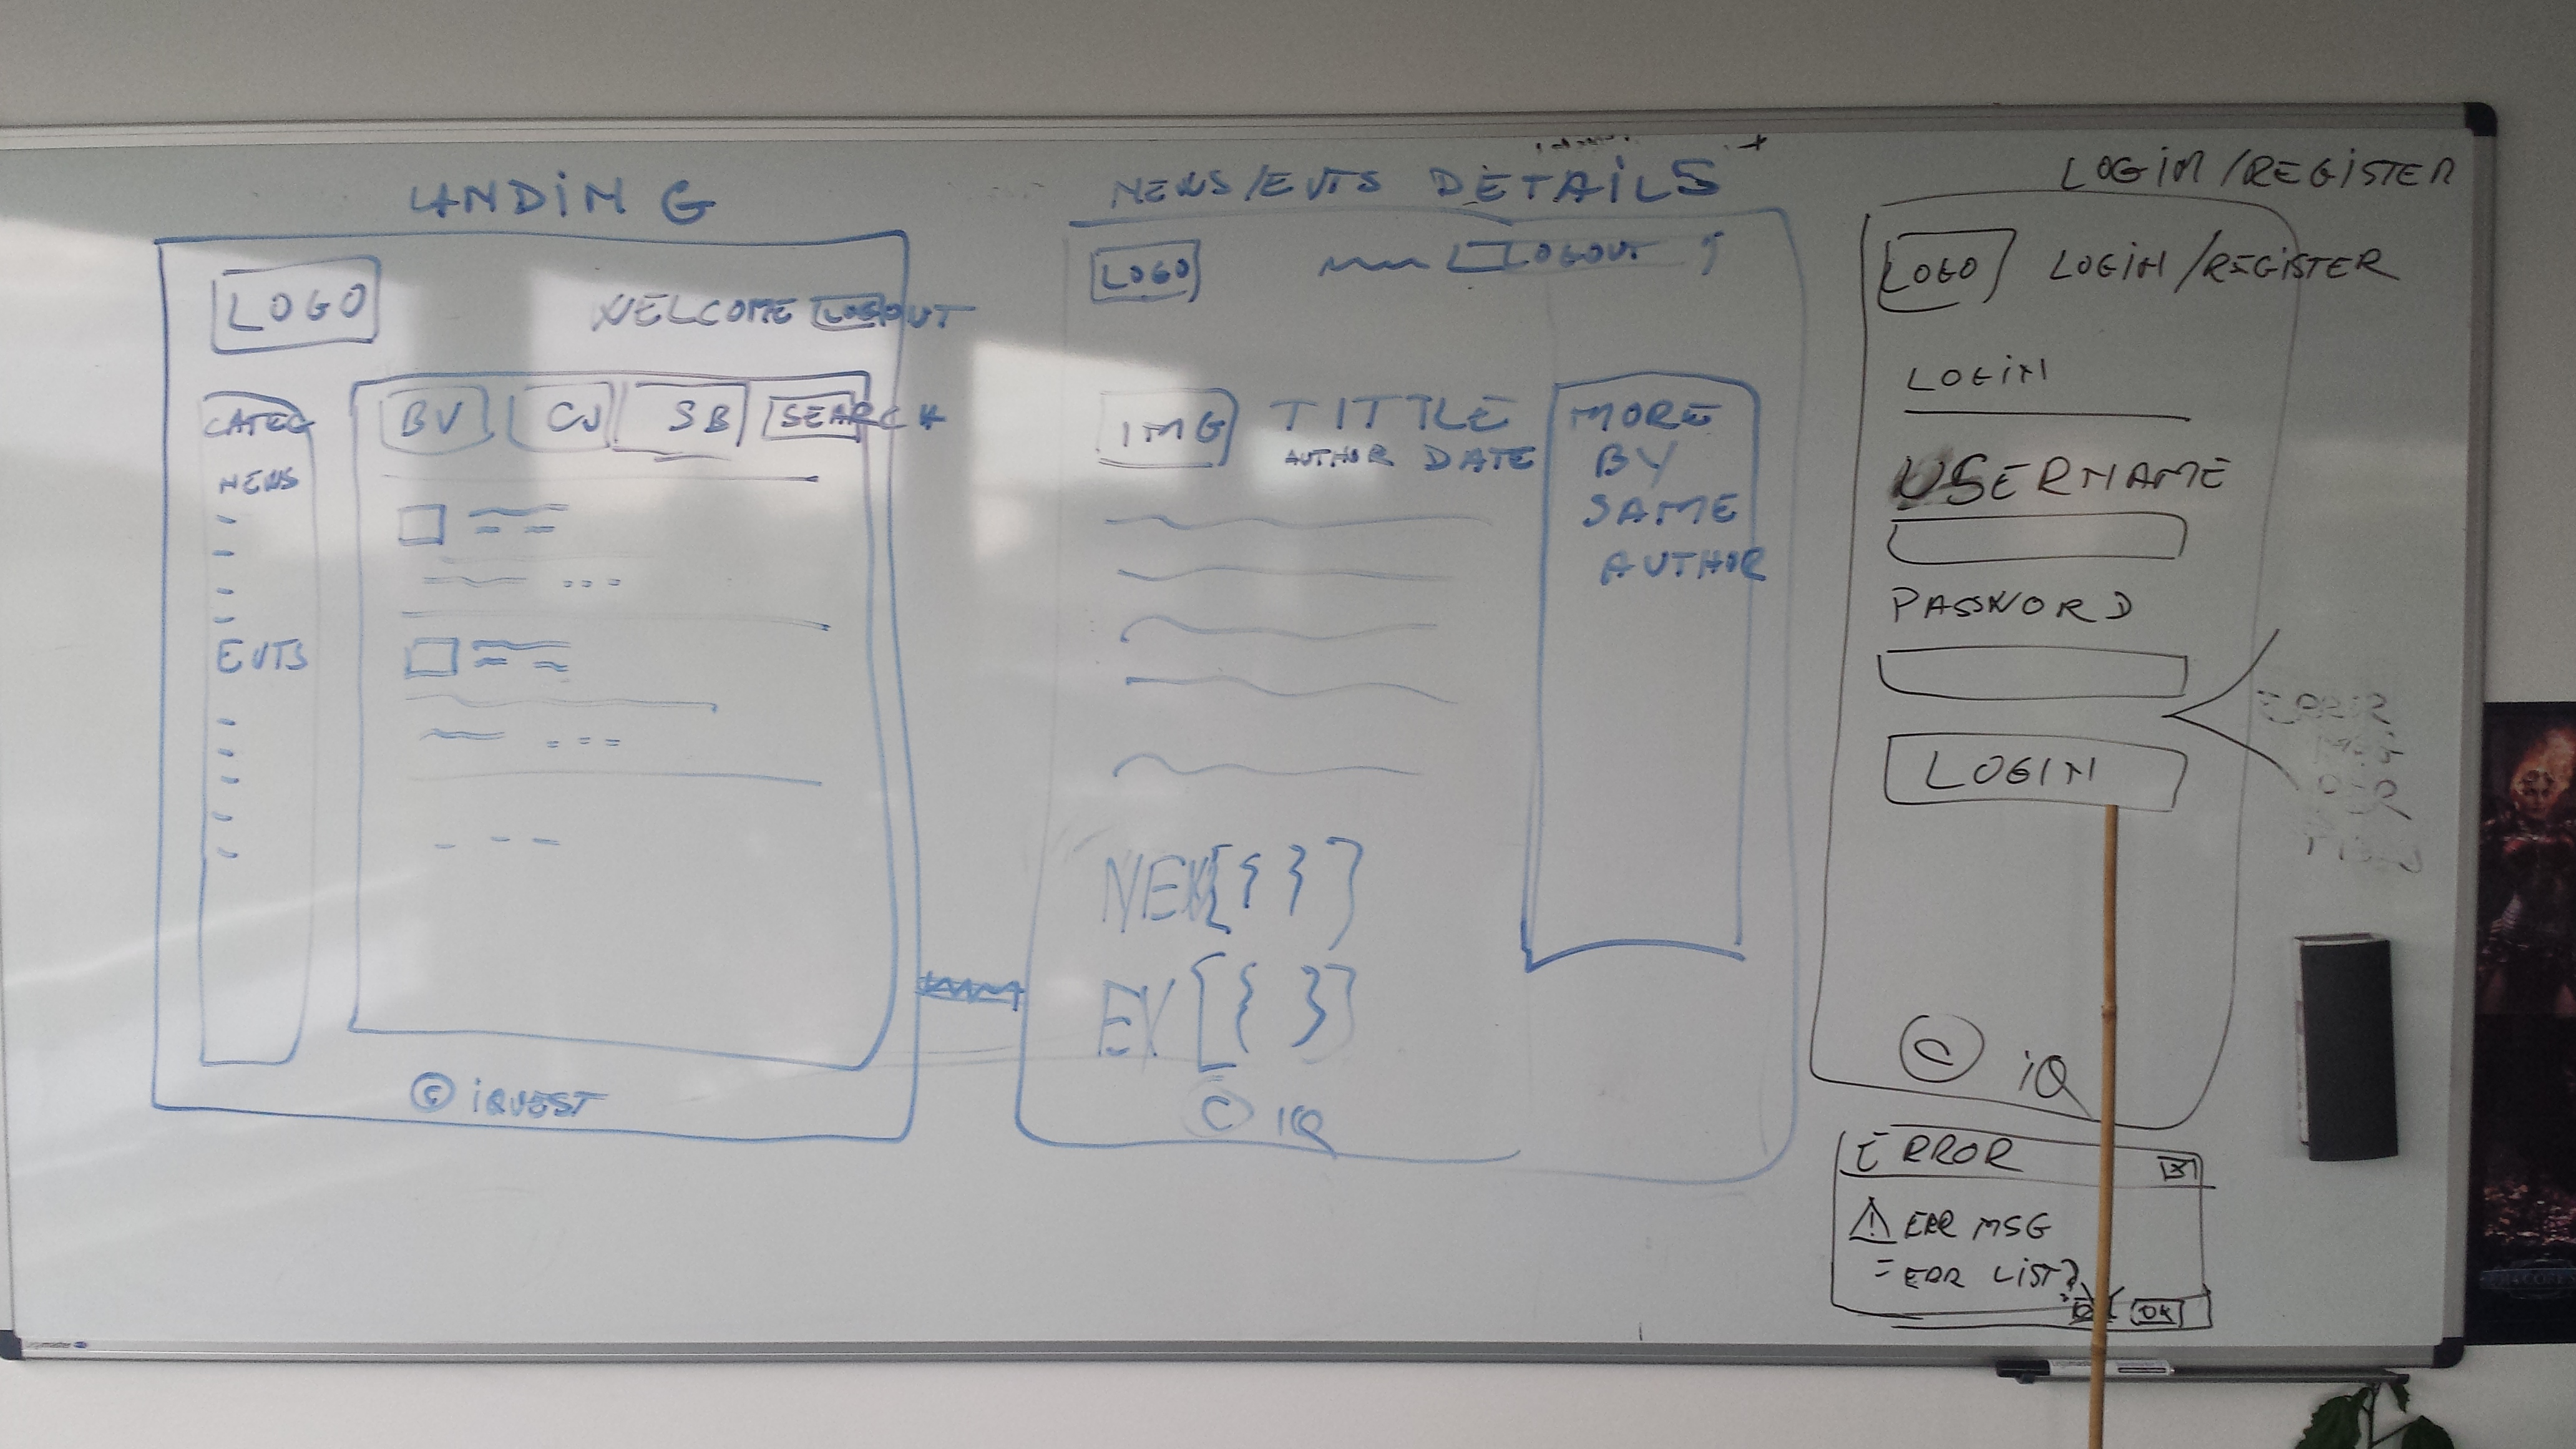 LANDING
LOGO
WELCOME LOGOUT
CATEG
BV CJ SB SEARCH
NEWS
EVTS
© iQUEST
NEWS/EVTS DETAILS
LOGO
LOGOUT
IMG TITTLE
AUTHOR DATE
MORE
BY
SAME
AUTHOR
NEW[{ }]
EV[{ }]
© iQ
LOGIN/REGISTER
LOGO LOGIN/REGISTER
LOGIN
USERNAME
PASSWORD
LOGIN
© iQ
ERROR X
! ERR MSG
= ERR LIST?
OK